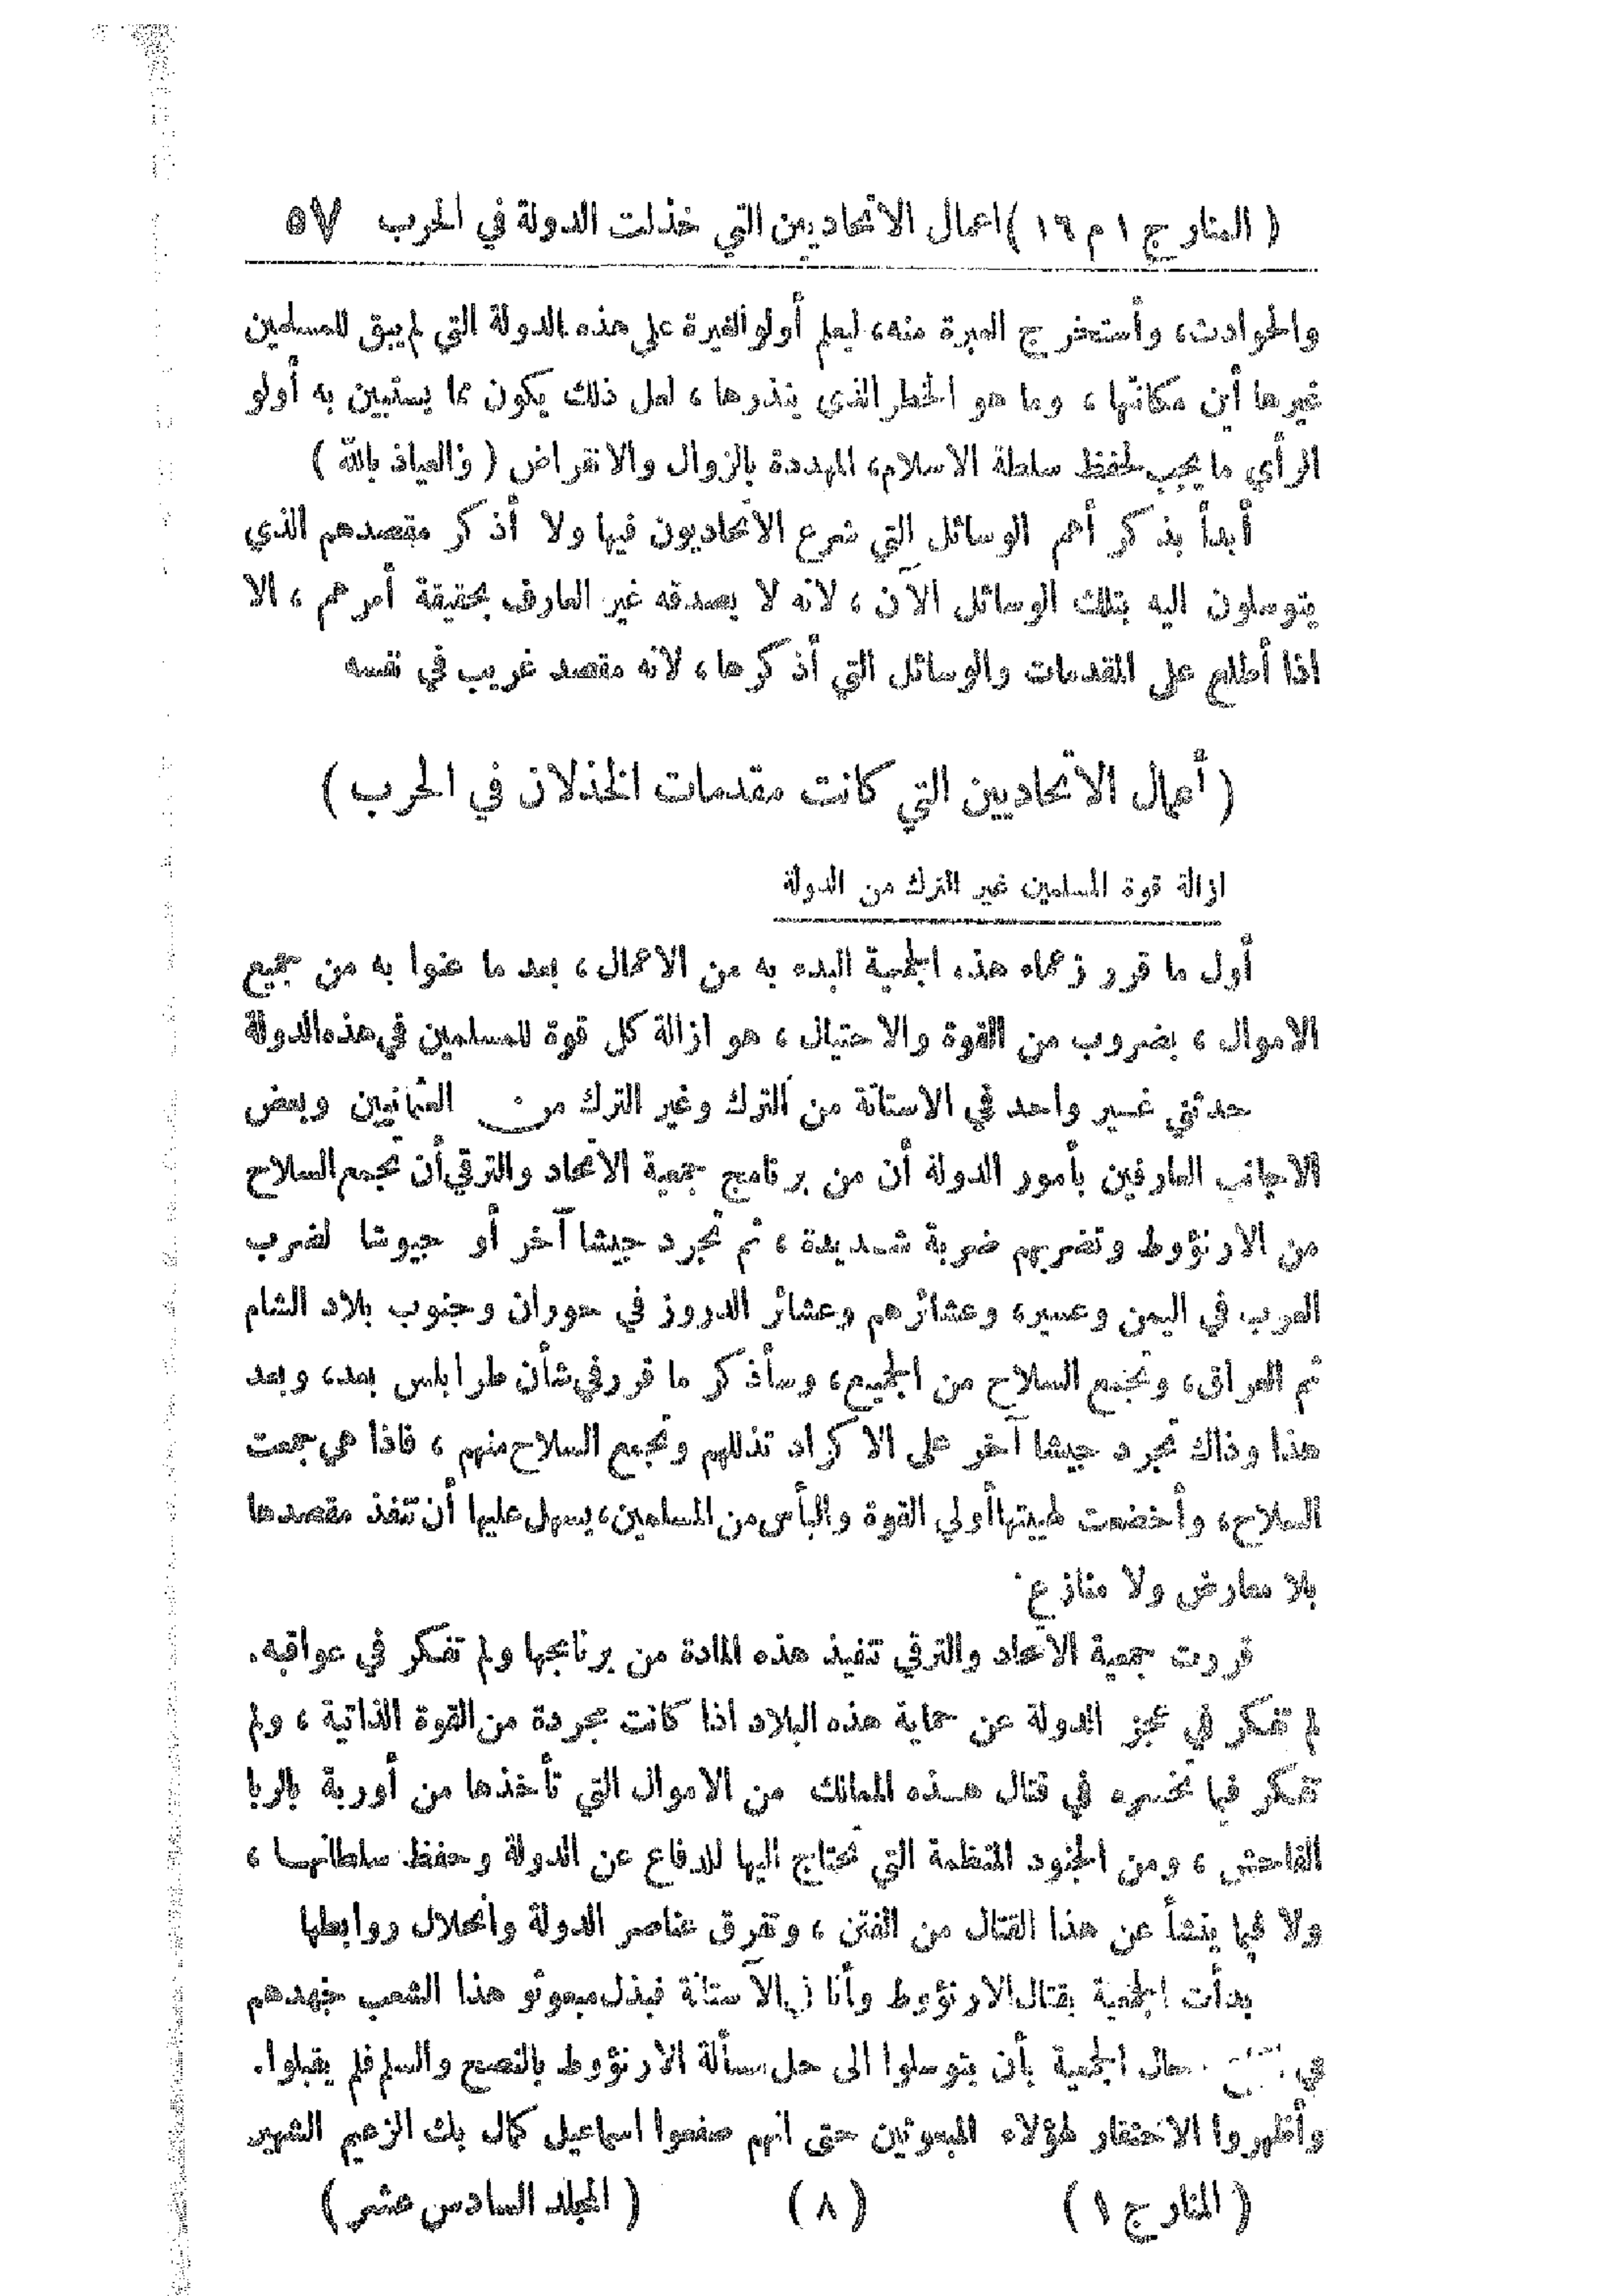 ( المنار ج ١ م ١٦ ) اعمال الاتحاديين التي خذلت الدولة في الحرب ٥٧
والحوادث، وأستخرج العبرة منه، ليعلم أولو الغيرة على هذه الدولة التي لم يبق للمسلمين
غيرها أين مكانها، وما هو الخطر الذي ينذرها، لعل ذلك يكون مما يستبين به أولو
الرأي ما يجب لحفظ سلطة الاسلام، المهددة بالزوال والانقراض ( والعياذ بالله )
أبدأ بذكر أهم الوسائل التي شرع الاتحاديون فيها ولا أذكر مقصدهم الذي
يتوسلون اليه بتلك الوسائل الآن، لانه لا يصدقه غير العارف بحقيقة أمرهم، الا
اذا أطلع على المقدمات والوسائل التي أذكرها، لانه مقصد غريب في نفسه
( أعمال الاتحاديين التي كانت مقدمات الخذلان في الحرب )
ازالة قوة المسلمين غير الترك من الدولة
أول ما قرر زعماء هذه الجمعية البدء به من الاعمال، بعد ما عنوا به من جميع
الاموال، بضروب من القوة والاحتيال، هو ازالة كل قوة للمسلمين في هذه الدولة
حدثني غير واحد في الاستانة من الترك وغير الترك من العثمانيين وبعض
الاجانب العارفين بأمور الدولة أن من برنامج جمعية الاتحاد والترقي أن تجمع السلاح
من الارنؤوط وتضربهم ضربة شديدة، ثم تجرد جيشا آخر أو جيوشا لضرب
العرب في اليمن وعسير، وعشائرهم وعشائر الدروز في حوران وجنوب بلاد الشام
ثم العراق، وتجمع السلاح من الجميع، وسأذكر ما قرر في شأن طرابلس بعد، وبعد
هذا وذاك تجرد جيشا آخر على الاكراد تذللهم وتجمع السلاح منهم، فاذا هي جمعت
السلاح، وأخضعت لهيبتها أولي القوة والبأس من المسلمين، يسهل عليها أن تنفذ مقصدها
بلا معارض ولا منازع
قررت جمعية الاتحاد والترقي تنفيذ هذه المادة من برنامجها ولم تفكر في عواقبه.
لم تفكر في عجز الدولة عن حماية هذه البلاد اذا كانت مجردة من القوة الذاتية، ولم
تفكر فيما تخسره في قتال هذه الممالك من الاموال التي تأخذها من أوربة بالربا
الفاحش، ومن الجنود المنظمة التي تحتاج اليها للدفاع عن الدولة وحفظ سلطانها،
ولا فيما ينشأ عن هذا القتال من الفتن، وتفرق عناصر الدولة وانحلال روابطها
بدأت الجمعية بقتال الارنؤوط وأنا في الآستانة فبذل مبعوثو هذا الشعب جهدهم
في رجال الجمعية بأن يتوسلوا الى حل مسألة الارنؤوط بالنصح والسلم فلم يقبلوا.
وأظهروا الاحتقار لهؤلاء المبعوثين حتى انهم صفعوا اسماعيل كمال بك الزعيم الشهير
( المنار ج ١ ) ( ٨ ) ( المجلد السادس عشر )